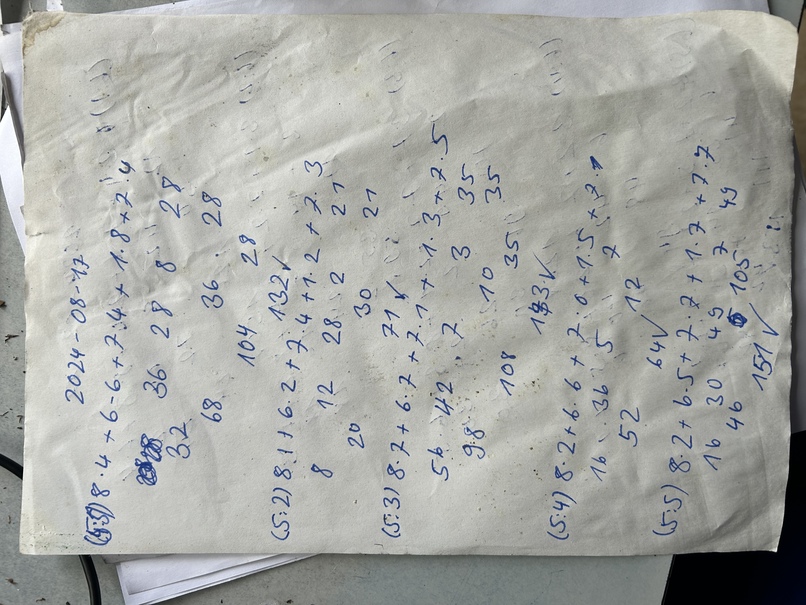 2024-08-17
(5:5) 8·4 + 6-6 + 7·4 + 1·8 + 7·4
32 36 28 8 28
68 36 28
104 28
132✓
(5:2) 8·1 + 6·2 + 7·4 + 1·2 + 7·3
8 12 28 2 21
20 30 21
71✓
(5:3) 8·7 + 6·7 + 7·1 + 1·3 + 7·5
56 42 7 3 35
98 10 35
108 35
143✓
(5:4) 8·2 + 6·6 + 7·0 + 1·5 + 7·1
16 36 5 7
52 12
64✓
(5:5) 8·2 + 6·5 + 7·7 + 1·7 + 7·7
16 30 49 7 49
46 105
151✓